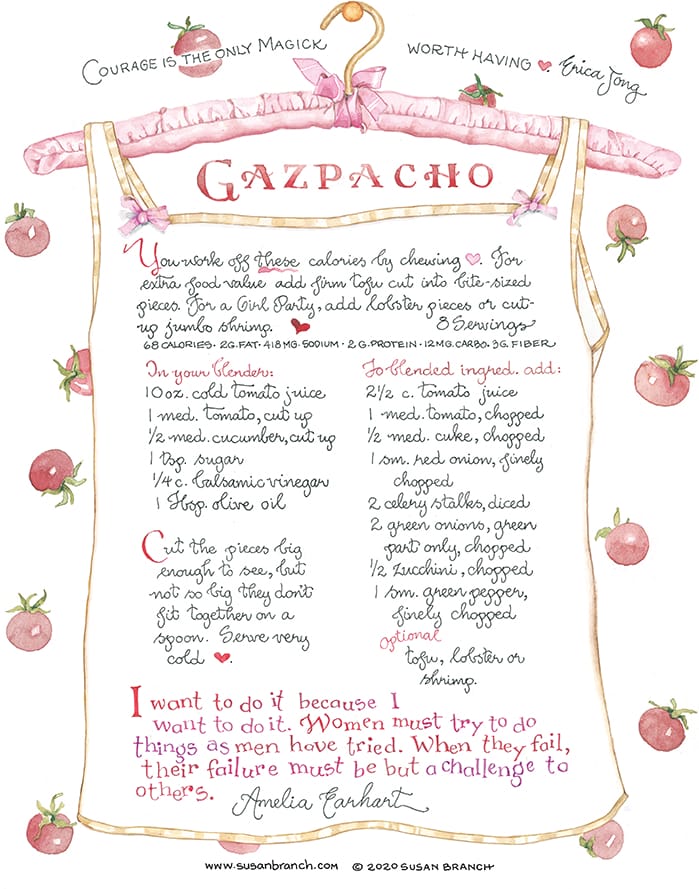 COURAGE IS THE ONLY MAGICK WORTH HAVING ♥. Erica Jong
GAZPACHO
You work off these calories by chewing ♥. For
extra food value add firm tofu cut into bite-sized
pieces. For a Girl Party, add lobster pieces or cut-
up jumbo shrimp. ♥ 8 Servings
68 CALORIES · 2G. FAT · 418 MG. SODIUM · 2 G. PROTEIN · 12MG. CARBO. 3G. FIBER
In your blender:
10 oz. cold tomato juice
1 med. tomato, cut up
1/2 med. cucumber, cut up
1 tsp. sugar
1/4 c. balsamic vinegar
1 Tbsp. olive oil
Cut the pieces big
enough to see, but
not so big they don't
fit together on a
spoon. Serve very
cold ♥.
To blended ingred. add:
2 1/2 c. tomato juice
1 med. tomato, chopped
1/2 med. cuke, chopped
1 sm. red onion, finely
chopped
2 celery stalks, diced
2 green onions, green
part only, chopped
1/2 zucchini, chopped
1 sm. green pepper,
finely chopped
Optional
tofu, lobster or
shrimp.
I want to do it because I
want to do it. Women must try to do
things as men have tried. When they fail,
their failure must be but a challenge to
others. Amelia Earhart
www.susanbranch.com © 2020 SUSAN BRANCH